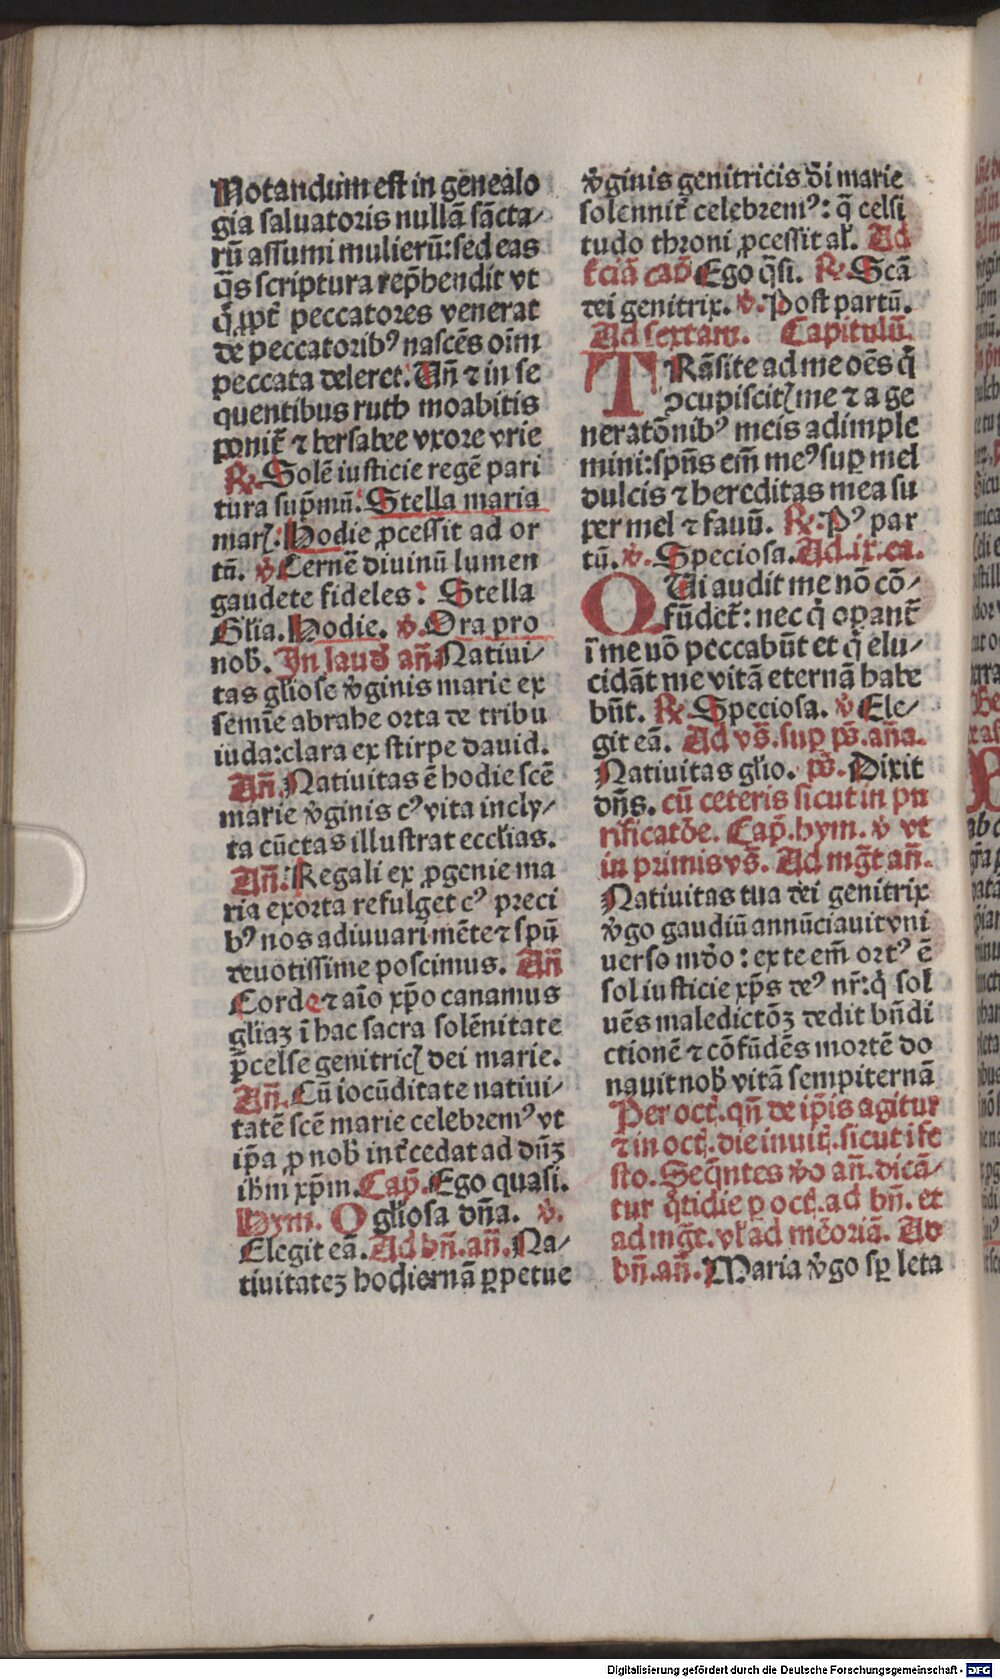 Notandum est in genealo
gia saluatoris nullā sācta⸗
rū assumi mulierū: sed eas
q̄s scriptura rep̄hendit vt
q̇ ꝓpt̄ peccatores venerat
de peccatoribꝰ nascēs oīm
peccata deleret. Uñ ⁊ in se
quentibus ruth moabitis
ponit̄ ⁊ bersabee vxore vrie
℟. Solē iusticie regē pari
tura sup̄mū. Stella maria
mar̄: Hodie ꝓcessit ad or
tū. ℣ Cernē diuinū lumen
gaudete fideles: Stella
Gl̄ia. Hodie. ℣. Ora pro
nob̄. In laud̄ añ. Natiui⸗
tas gl̄iose v̄ginis marie ex
semīe abrahe orta de tribu
iuda: clara ex stirpe dauid.
Añ. Natiuitas ē hodie scē
marie v̄ginis cꝰ vita incly⸗
ta cūctas illustrat eccl̄ias.
Añ. Regali ex ꝓgenie ma
ria exorta refulget cꝰ preci
bꝰ nos adiuuari mēte ⁊ spū
deuotissime poscimus. Añ
Corde ⁊ aīo xp̄o canamus
gl̄iaꝫ ī hac sacra solēnitate
p̄celse genitricꝭ dei marie.
Añ. Cū iocūditate natiui⸗
tatē scē marie celebremꝰ vt
ip̄a ꝓ nob̄ int̄cedat ad dn̄ꝫ
ih̄m xp̄m. Cap̄. Ego quasi.
Hym. O gl̄iosa dn̄a. ℣.
Elegit eā. Ad bn̄. añ. Na⸗
tiuitateꝫ hodiernā ꝑpetue
v̄ginis genitricis d̄i marie
solennit̄ celebremꝰ: q̄ celsi
tudo throni ꝓcessit al̄. Ad
t̄ciā cap̄ Ego q̄si. ℟. Scā
dei genitrix. ℣. Post partū.
Ad sextam. Capitulū.
TRāsite ad me oēs q̇
ↄcupiscitꝭ me ⁊ a ge
neratōnibꝰ meis adimple
mini: spūs em̄ meꝰ suꝑ mel
dulcis ⁊ hereditas mea su
per mel ⁊ fauū. ℟. Pꝰ par
tū. ℣. Speciosa. Ad .ix. ca.
QUi audit me nō cō⸗
fūdet̄: nec q̇ opant̄
ī me nō peccabūt et q̇ elu⸗
cidāt me vitā eternā habe
būt. ℟. Speciosa. ℣ Ele⸗
git eā. Ad vs̄. suꝑ ps̄. aña.
Natiuitas gl̄io. ps̄. Dixit
dn̄s. cū ceteris sicut in pu
rificatōe. Cap̄. hym. ℣ vt
in primis vs̄. Ad mḡt añ.
Natiuitas tua dei genitrix
v̄go gaudiū annūciauit vni
uerso mūdo: ex te em̄ ortꝰ ē
sol iusticie xp̄s deꝰ nr̄: q̇ sol
uēs maledictōꝫ dedit bn̄di
ctionē ⁊ cōfūdēs mortē do
nauit nob̄ vitā sempiternā
Per oct̄. qn̄ de ip̄is agitur
⁊ in oct̄. die inuit̄. sicut ī fe
sto. Seq̄ntes v̄o añ. dicā⸗
tur q̄tidie ꝑ oct̄. ad bn̄. et
ad mḡt. vl̄ ad mēoriā. Ad
bn̄. añ. Maria v̄go sꝑ leta
Digitalisierung gefördert durch die Deutsche Forschungsgemeinschaft - DFG